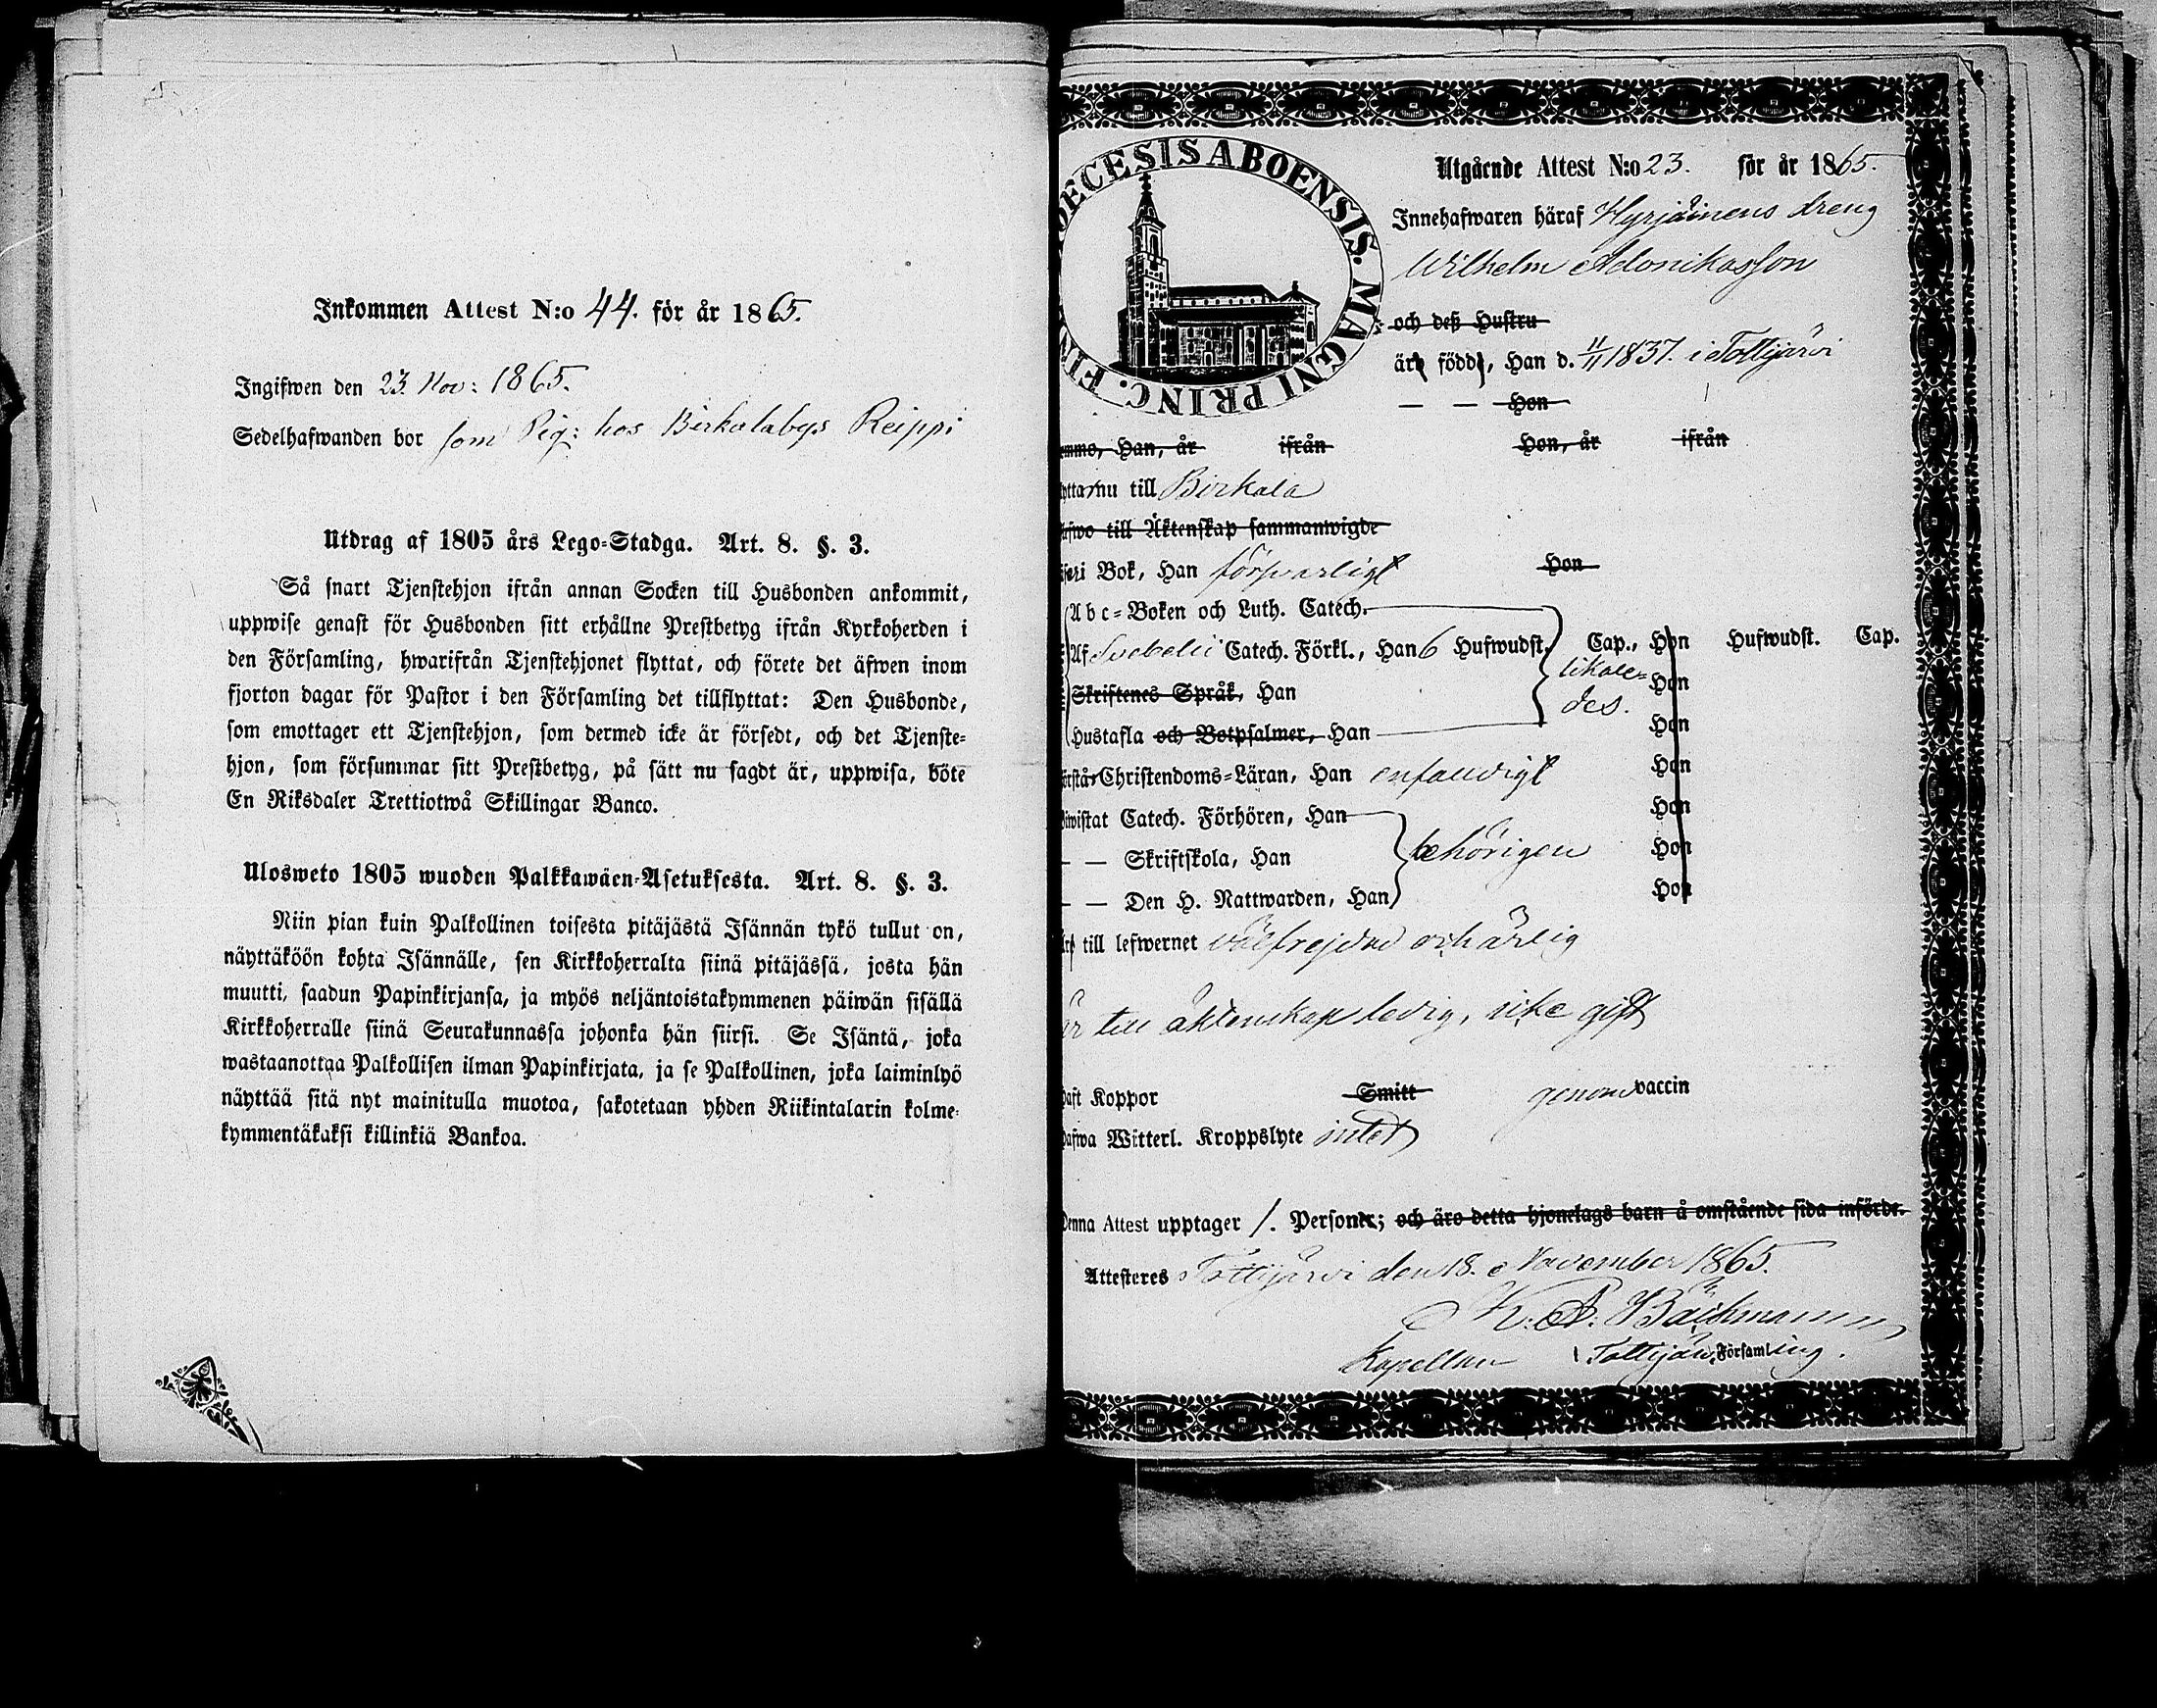 Inkommen Attest N:o 44. för år 1865.
Ingifwen den 23. Nov: 1865.
Sedelhafwanden bor som Pig: hos Birkalabys Reippi
Utdrag af 1805 års Lego-Stadga. Art. 8. §. 3.
Så snart Tjenstehjon ifrån annan Socken till Husbonden ankommit,
uppwise genast för Husbonden sitt erhållne Prestbetyg ifrån Kyrkoherden i
den Församling, hwarifrån Tjenstehjonet flyttat, och förete det äfwen inom
fjorton dagar för Pastor i den Församling det tillflyttat: Den Husbonde,
som emottager ett Tjenstehjon, som dermed icke är försedt, och det Tjenste-
hjon, som försummar sitt Prestbetyg, på sätt nu sagdt är, uppwisa, böte
En Riksdaler Trettiotwå Skillingar Banco.
Ulosweto 1805 wuoden Palkkawäen-Asetuksesta. Art. 8. §. 3.
Niin pian kuin Palkollinen toisesta pitäjästä Isännän tykö tullut on,
näyttäköön kohta Isännälle, sen Kirkkoherralta siinä pitäjässä, josta hän
muutti, saadun Papinkirjansa, ja myös neljäntoistakymmenen päiwän sisällä
Kirkkoherralle siinä Seurakunnassa johonka hän siirsi. Se Isäntä, joka
wastaanottaa Palkollisen ilman Papinkirjata, ja se Palkollinen, joka laiminlyö
näyttää sitä nyt mainitulla muotoa, sakotetaan yhden Riikintalarin kolme-
kymmentäkaksi killinkiä Bankoa.
ECESIS ABOENSIS. MAGNI PRINC. FIN
Utgående Attest N:o 23. för år 1865.
Innehafwaren häraf Hyrjäinens dreng
Wilhelm Adonikasson
och deß Hustru
äro födde, Han d. 11/11 1837. i Tottijärvi
— — Hon
Han, år ifrån Hon, år ifrån
nu till Birkala
till Äktenskap sammanwigde
i Bok, Han försvarligt Hon
Abc-Boken och Luth. Catech.
Af Svebelii Catech. Förkl., Han 6 Hufwudst. Cap., Hon Hufwudst. Cap.
likale-
des.
Skriftenes Språk, Han Hon
Hustafla och Botpsalmer, Han Hon
Christendoms-Läran, Han enfaldigt Hon
Catech. Förhören, Han Hon
— — Skriftskola, Han behörigen Hon
— — Den H. Nattwarden, Han Hon
till lefwernet välfrejdad och ärlig
är till äktenskap ledig, icke gift
haft Koppor Smitt genom vaccin
hafwa Witterl. Kroppslyte intet
Denna Attest upptager 1. Personer; och äro detta hjonelags barn å omstående sida införde.
Attesteres Tottijärvi den 18. November 1865.
K. A. Bäckmann
Kapellan i Tottijärvi Församling.